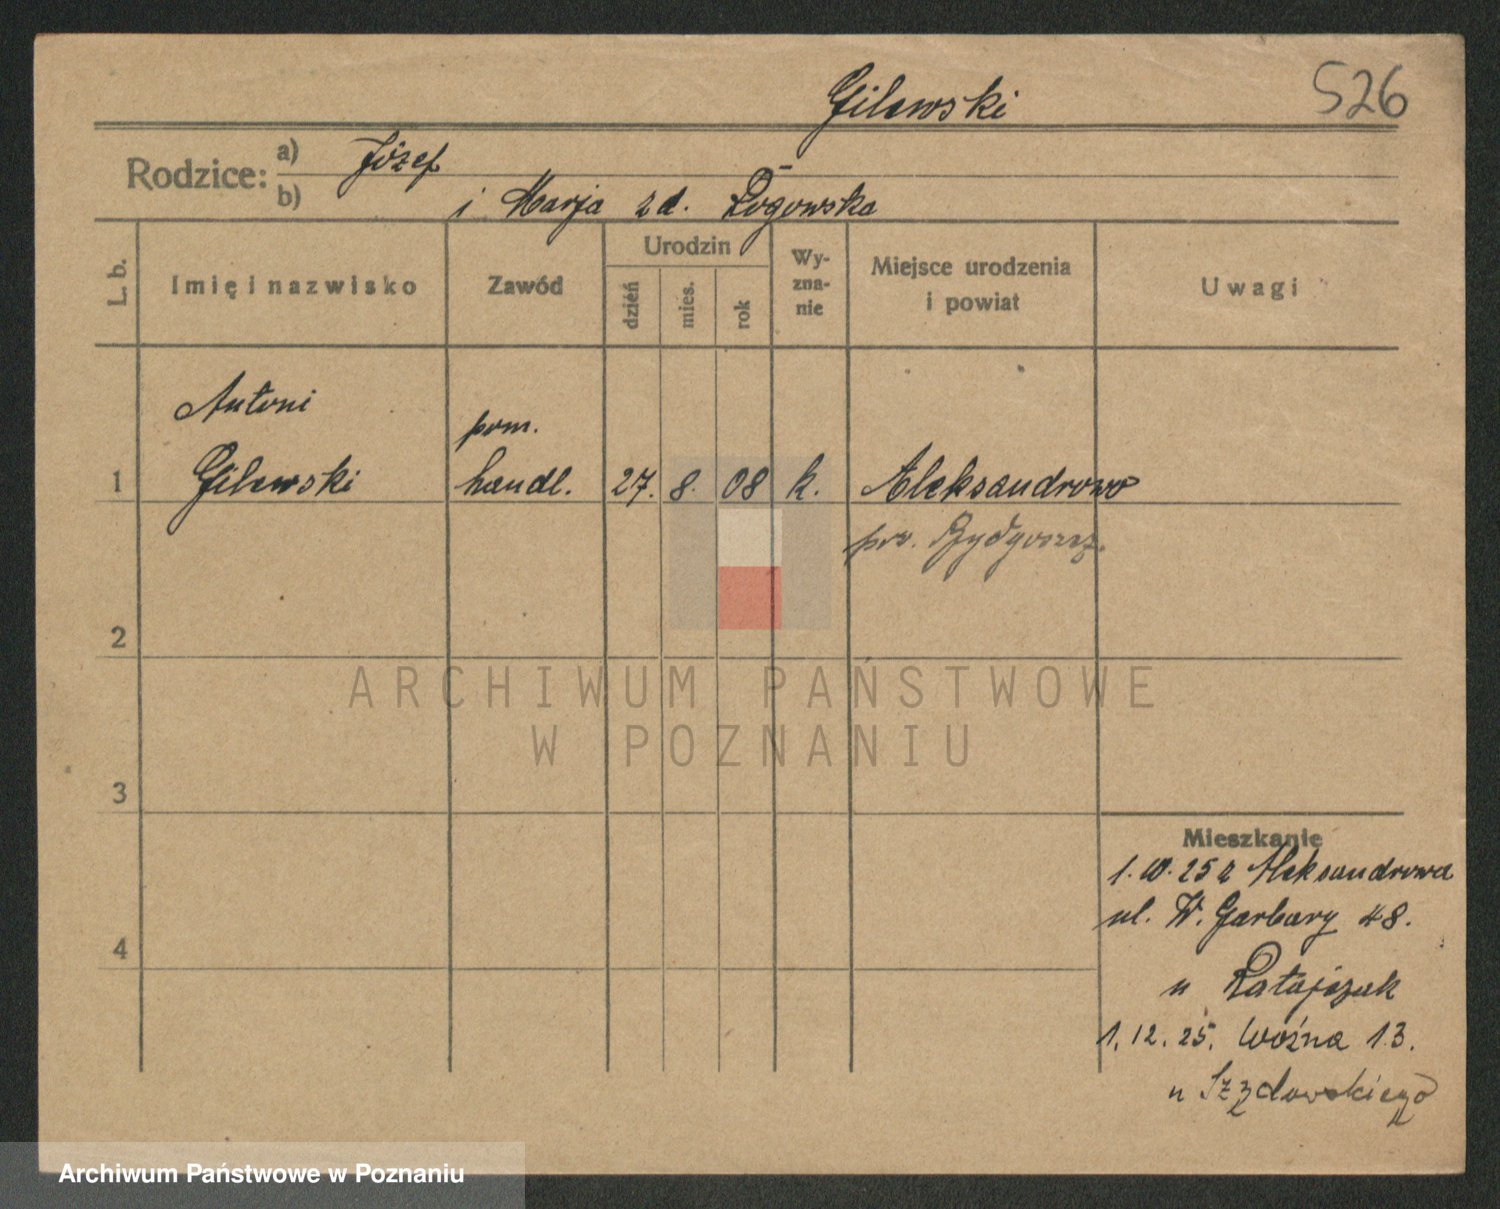 Gilewski
526
Rodzice:
a) Józef
b) i Marja zd. Rogowska
L. b.
Imię i nazwisko
Zawód
Urodzin
dzień
mies.
rok
Wy-
zna-
nie
Miejsce urodzenia
i powiat
Uwagi
Antoni
pom.
1 Gilewski handl. 27. 8. 08 k. Aleksandrowo
pow. Bydgoszcz.
2
3
4
Mieszkanie
1.10.25 z Aleksandrowa
ul. W. Garbary 48.
u Ratajczak
1.12.25. Woźna 13.
u
ARCHIWUM PAŃSTWOWE
W POZNANIU
Archiwum Państwowe w Poznaniu